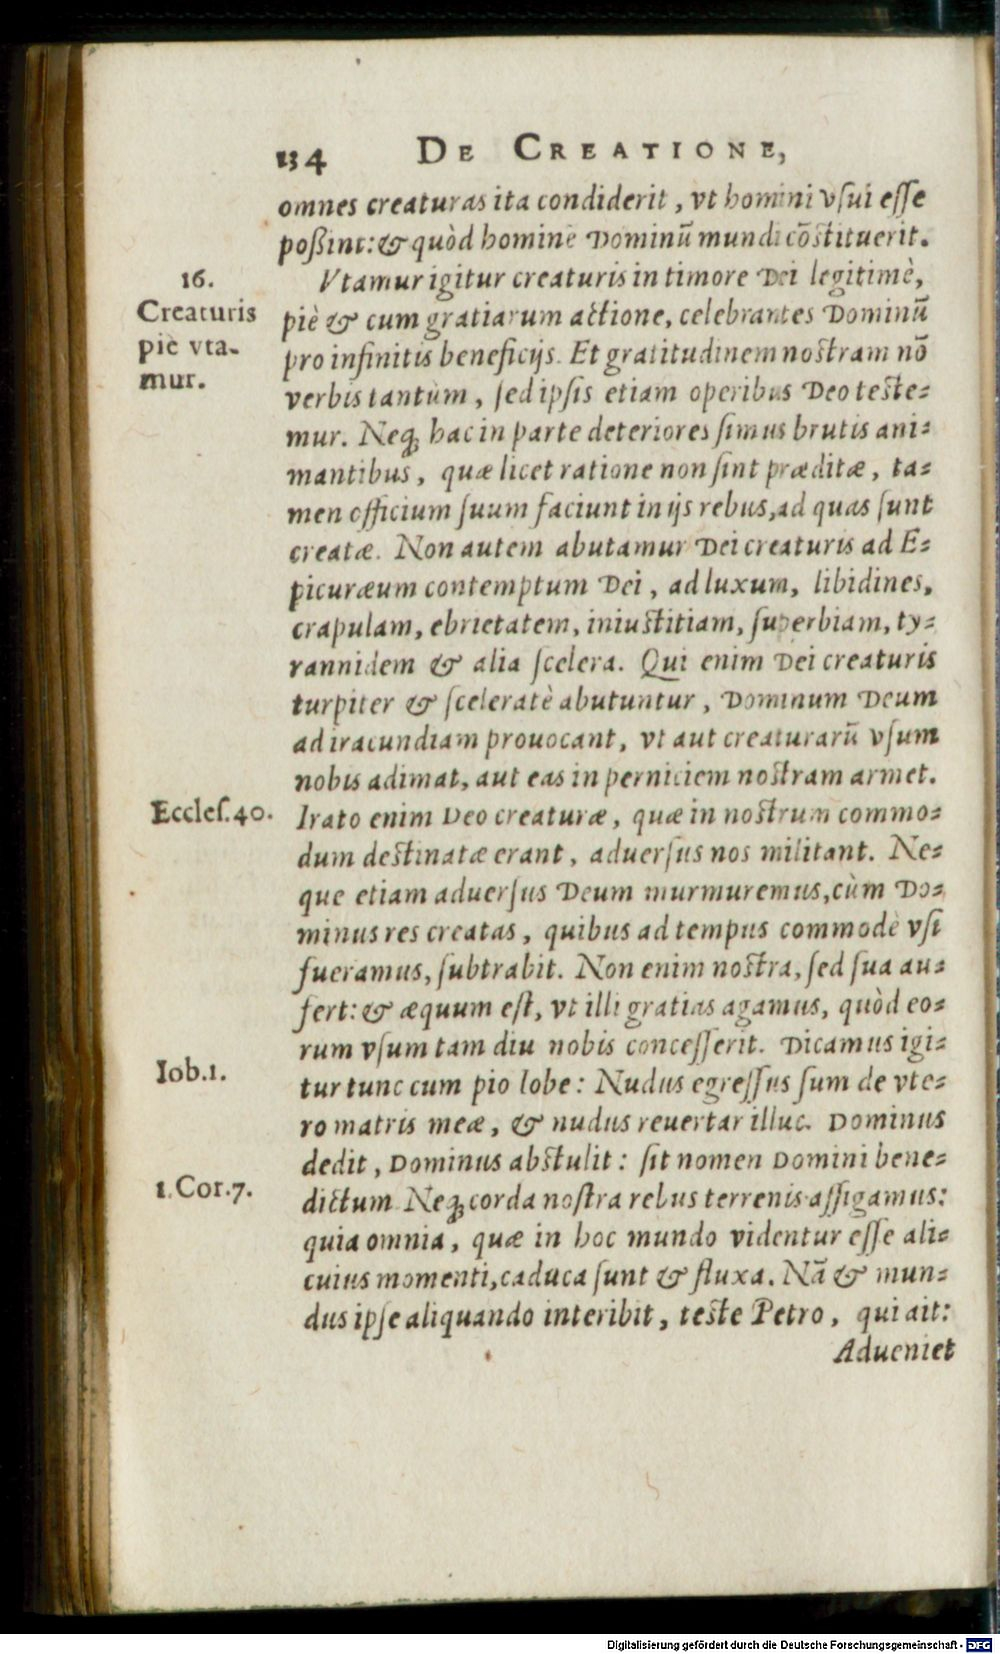 134 DE CREATIONE,
omnes creaturas ita condiderit, vt homini vſui eſſe
poßint: & quòd hominē Dominū mundi cōſtituerit.
16.
Creaturis
piè vta-
mur.
Vtamur igitur creaturis in timore Dei legitimè,
piè & cum gratiarum actione, celebrantes Dominū
pro infinitis beneficijs. Et gratitudinem noſtram nō
verbis tantùm, ſed ipſis etiam operibus Deo teſte-
mur. Neq; hac in parte deteriores ſimus brutis ani-
mantibus, quæ licet ratione non ſint præditæ, ta-
men officium ſuum faciunt in ijs rebus, ad quas ſunt
creatæ. Non autem abutamur Dei creaturis ad E-
picuræum contemptum Dei, ad luxum, libidines,
crapulam, ebrietatem, iniuſtitiam, ſuperbiam, ty-
rannidem & alia ſcelera. Qui enim Dei creaturis
turpiter & ſceleratè abutuntur, Dominum Deum
ad iracundiam prouocant, vt aut creaturarū vſum
nobis adimat, aut eas in perniciem noſtram armet.
Eccleſ.40.
Irato enim Deo creaturæ, quæ in noſtrum commo-
dum deſtinatæ erant, aduerſus nos militant. Ne-
que etiam aduerſus Deum murmuremus, cùm Do-
minus res creatas, quibus ad tempus commodè vſi
fueramus, ſubtrahit. Non enim noſtra, ſed ſua au-
fert: & æquum eſt, vt illi gratias agamus, quòd eo-
rum vſum tam diu nobis conceſſerit. Dicamus igi-
Iob.1.
tur tunc cum pio Iobe: Nudus egreſſus ſum de vte-
ro matris meæ, & nudus reuertar illuc. Dominus
dedit, Dominus abſtulit: ſit nomen Domini bene-
1.Cor.7.
dictum. Neq; corda noſtra rebus terrenis affigamus:
quia omnia, quæ in hoc mundo videntur eſſe ali-
cuius momenti, caduca ſunt & fluxa. Nā & mun-
dus ipſe aliquando interibit, teſte Petro, qui ait:
Adueniet
Digitalisierung gefördert durch die Deutsche Forschungsgemeinschaft - DFG